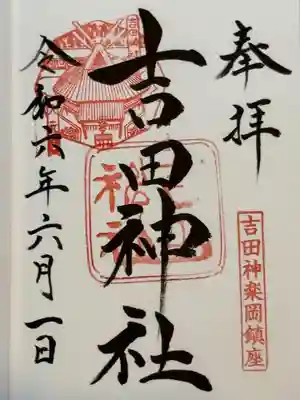 奉拝
吉田神楽岡鎮座
吉田神社
令和六年六月一日